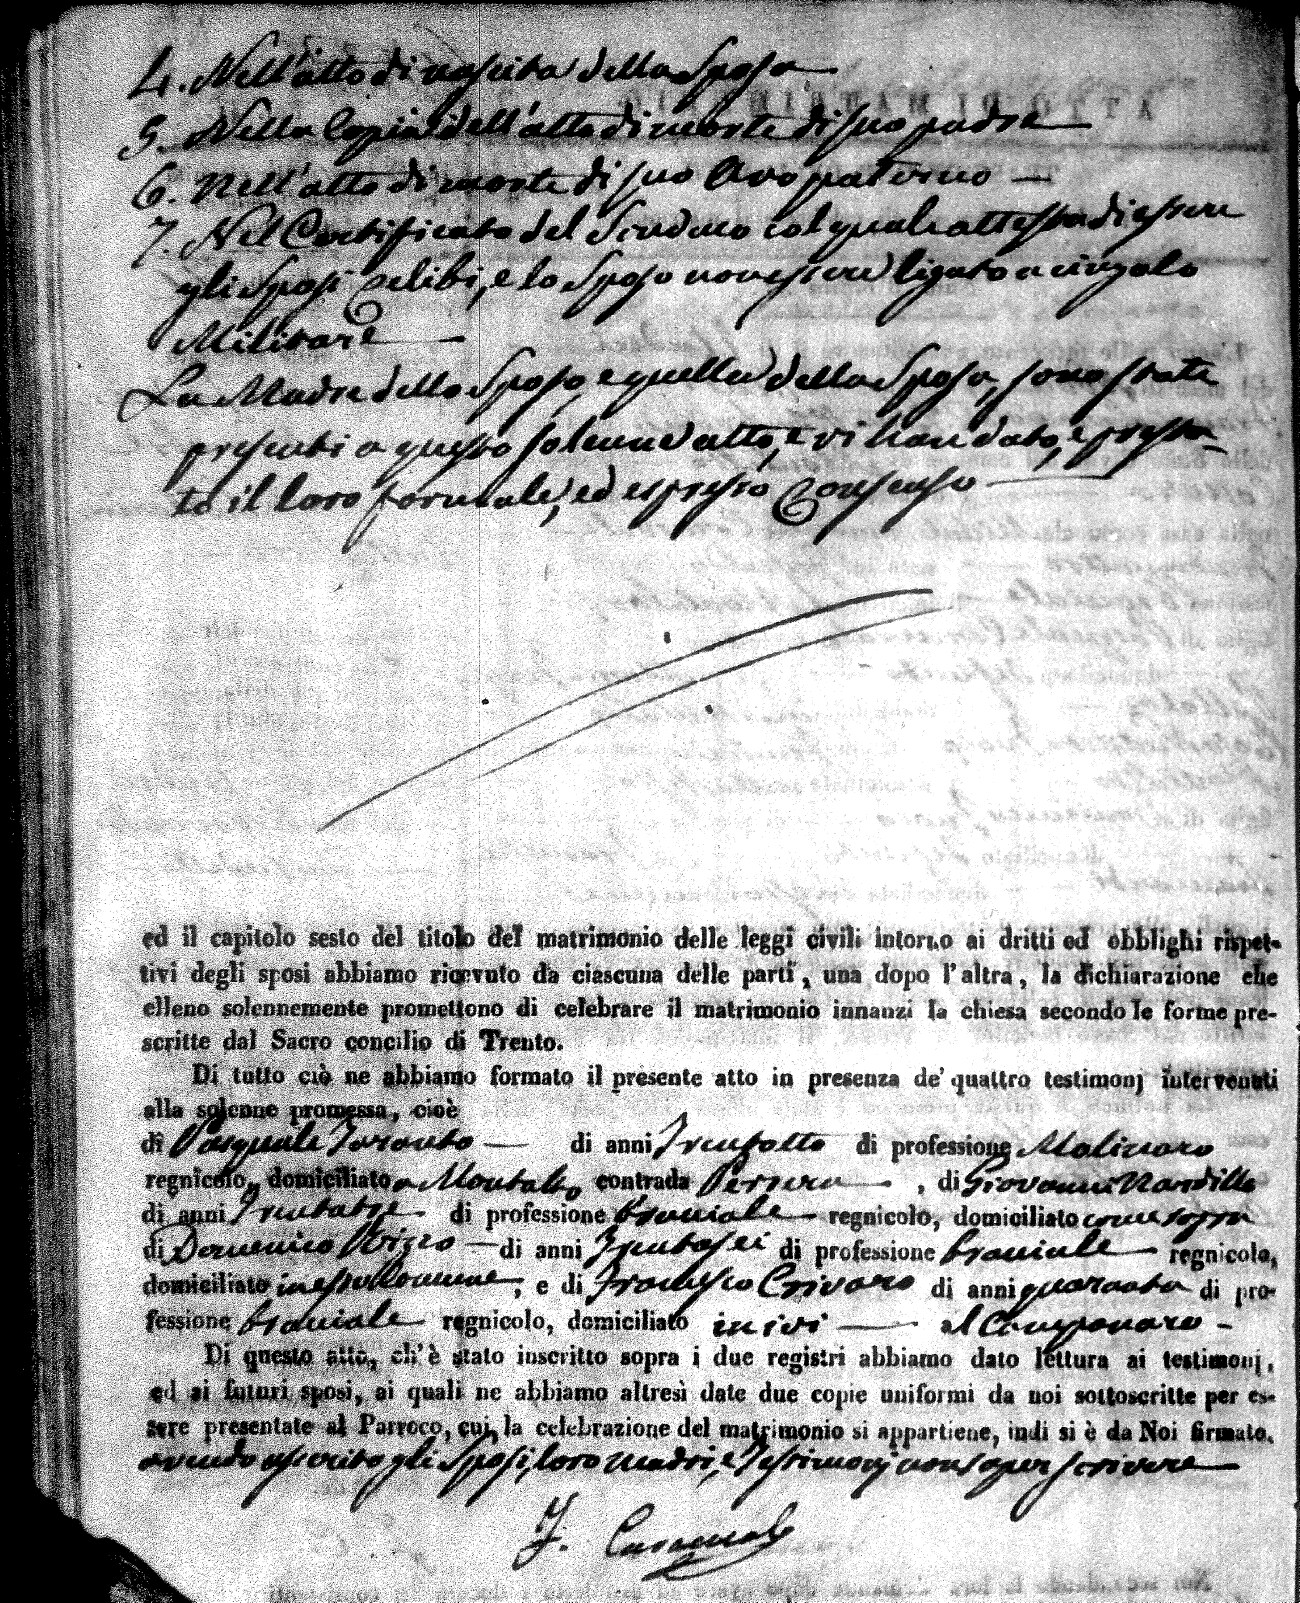 4. Nell'atto di nascita della Sposa
5. Nella Copia dell'atto di morte di suo padre
6. Nell'atto di morte di suo Avo paterno
7. Nel Certificato del Sindaco col quale attesta di essere
gli Sposi celibi, e lo Sposo non essere ligato a cingolo
Militare
La Madre dello Sposo, e quella della Sposa, sono state
presenti a questo solenne atto, e vi han dato, e presta-
to il loro formale, ed espresso Consenso
ed il capitolo sesto del titolo del matrimonio delle leggi civili intorno ai dritti ed obblighi rispet-
tivi degli sposi abbiamo ricevuto da ciascuna delle parti, una dopo l'altra, la dichiarazione che
elleno solennemente promettono di celebrare il matrimonio innanzi la chiesa secondo le forme pre-
scritte dal Sacro concilio di Trento.
Di tutto ciò ne abbiamo formato il presente atto in presenza de' quattro testimonj intervenuti
alla solenne promessa, cioè
di Pasquale Toranto di anni Trentotto di professione Molinaro
regnicolo, domiciliato a Montalto contrada , di Giovanni Nardillo
di anni Trentatre di professione bracciale regnicolo, domiciliato come sopra
di Domenico Rizzo di anni Trentasei di professione bracciale regnicolo,
domiciliato in esso Comune, e di Francesco Crivaro di anni quaranta di pro-
fessione bracciale regnicolo, domiciliato in ivi al Componaro
Di questo atto, ch'è stato inscritto sopra i due registri abbiamo dato lettura ai testimonj,
ed ai futuri sposi, ai quali ne abbiamo altresì date due copie uniformi da noi sottoscritte per es-
sere presentate al Parroco, cui, la celebrazione del matrimonio si appartiene, indi si è da Noi firmato,
avendo asserito gli Sposi, loro madri, e Testimonj non saper scrivere